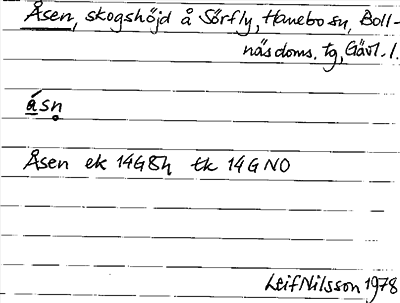 Åsen, skogshöjd å Sörfly, Hanebo sn, Boll-
näs doms. tg, Gävl. l.
ǻsn̥
Åsen ek 14G8h tk 14G NO
Leif Nilsson 1978